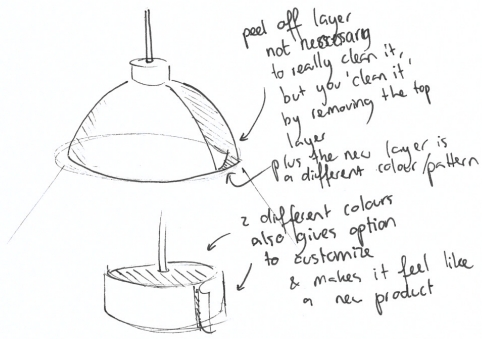 peel off layer
not necessary
to really clean it,
but you 'clean it'
by removing the top
layer
plus the new layer is
a different colour/pattern
2 different colours
also gives option
to customize
& makes it feel like
a new product